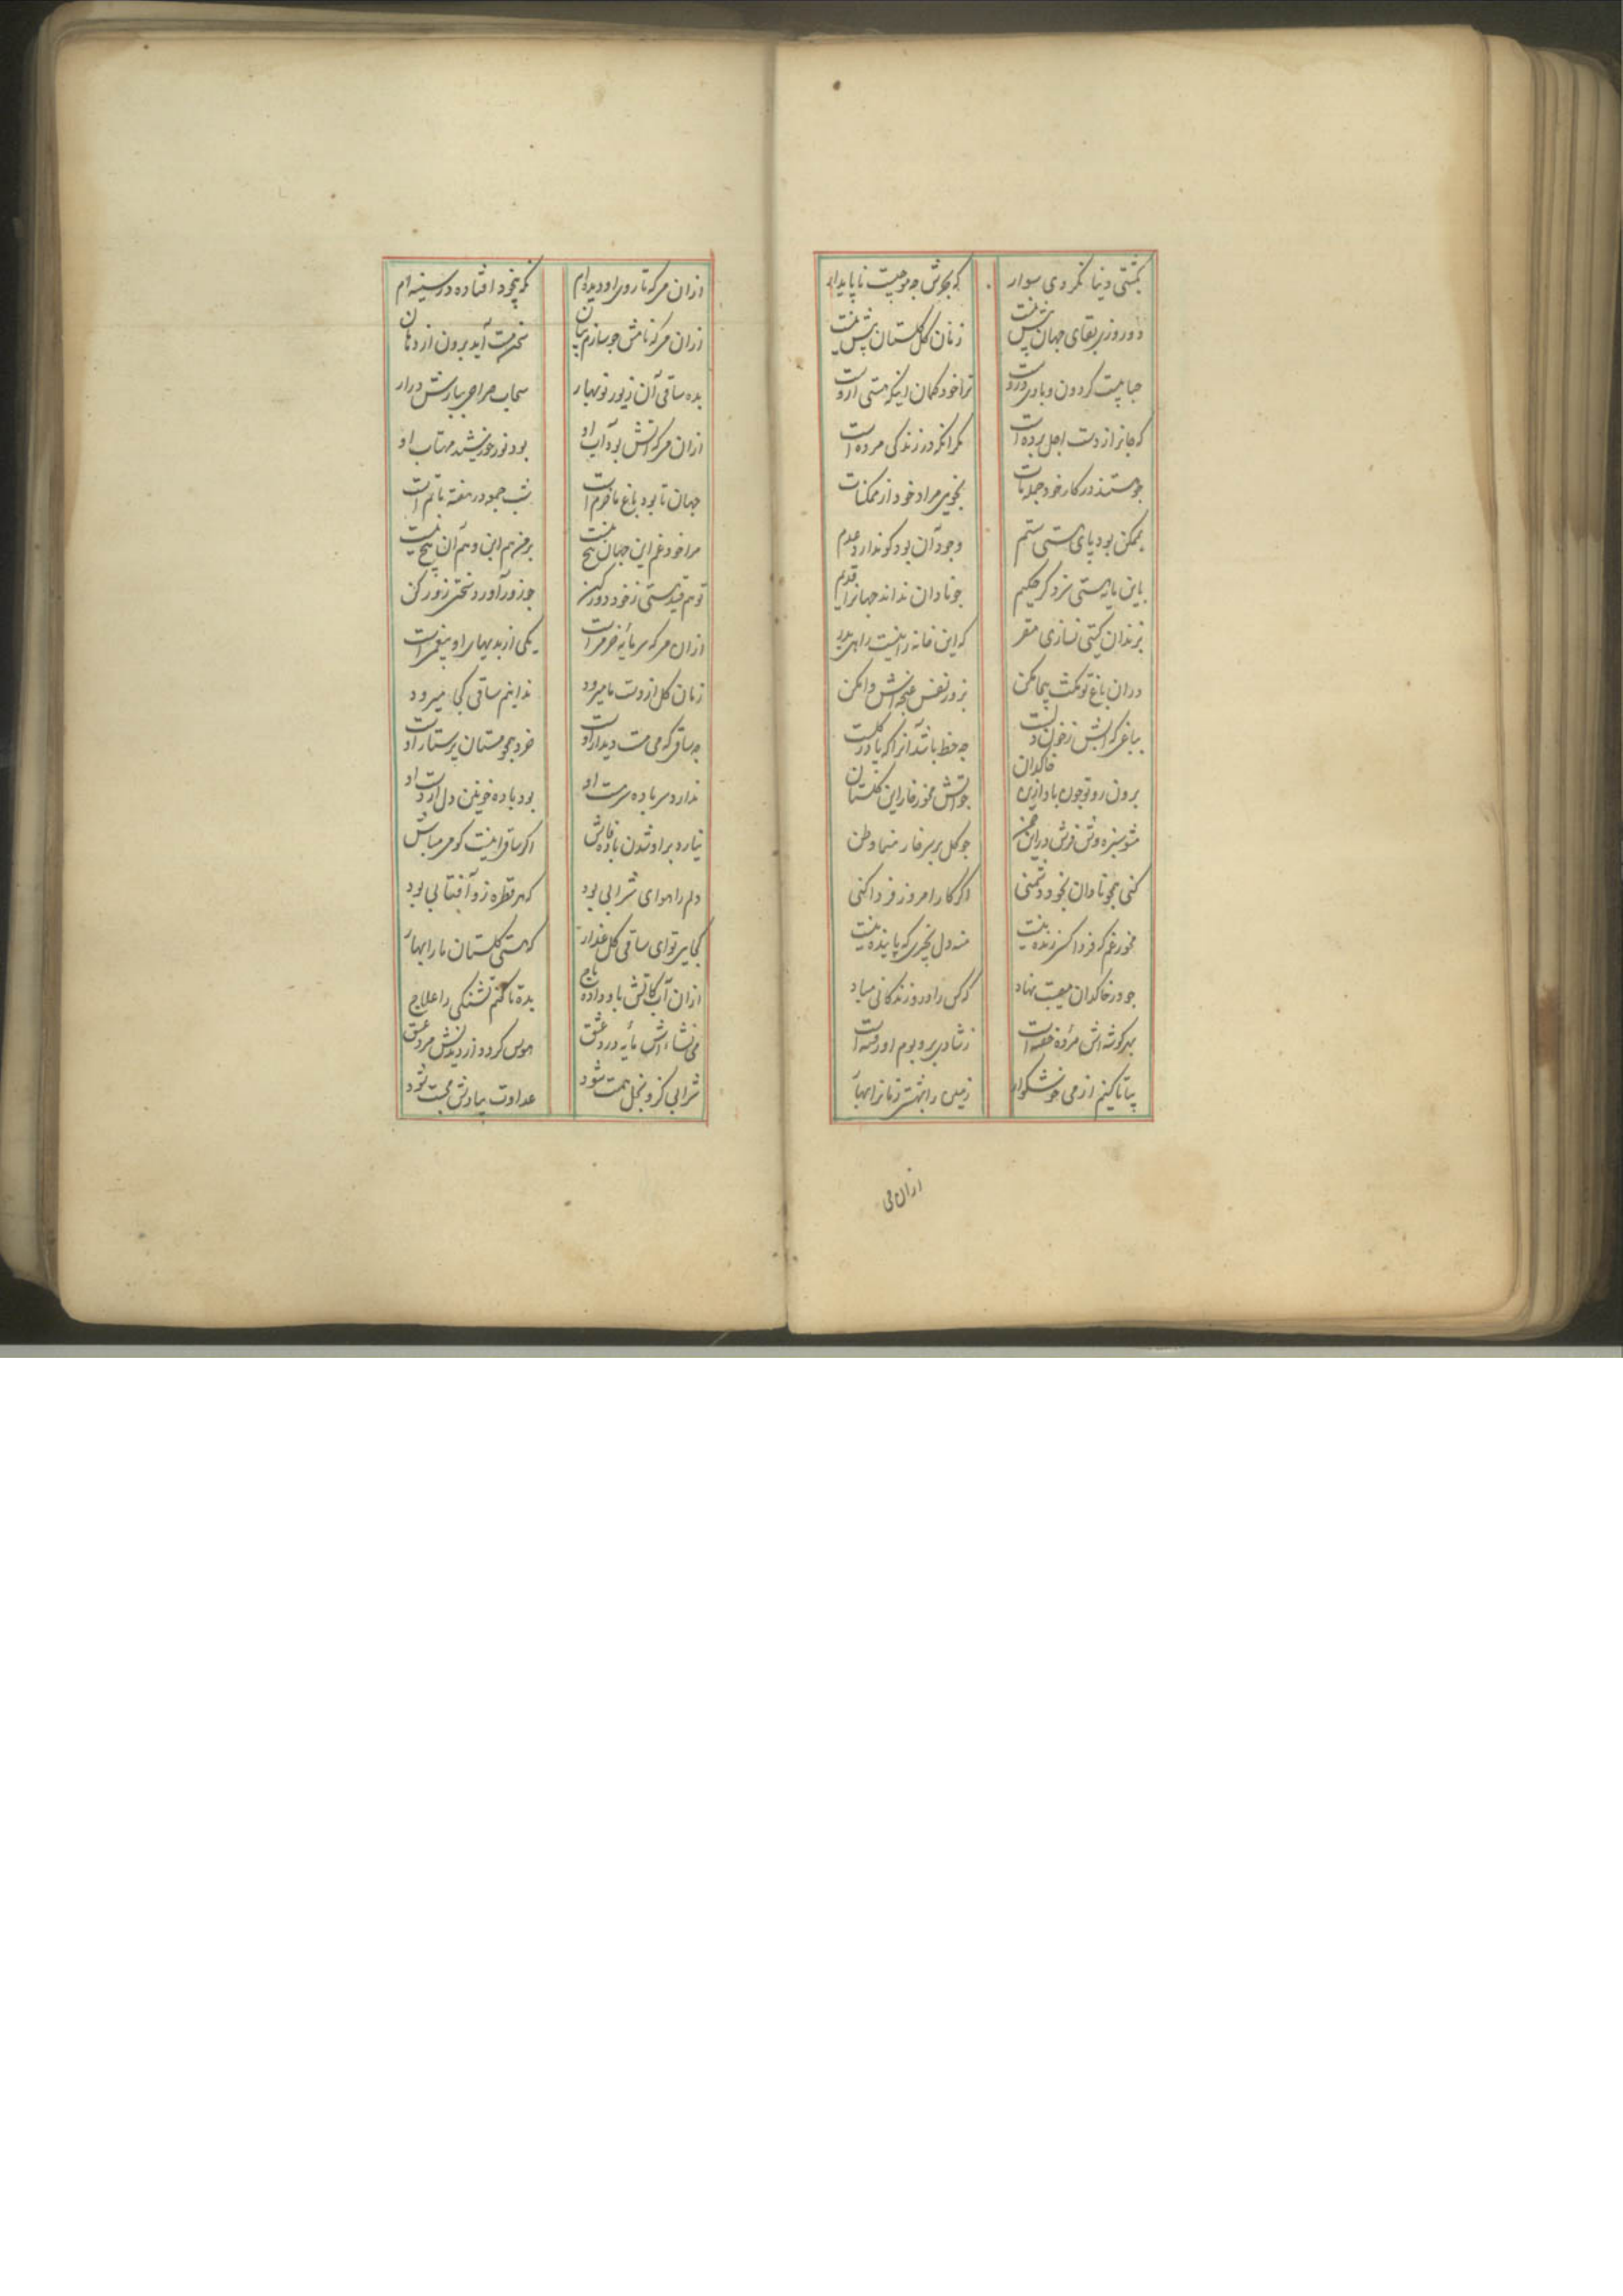 بکشتی دنیا نکردی سوار که بحرش چه موجیست ناپایدار
دو روزی بقای جهان بیش نیست زمان گل گلستان بیش نیست
حبابیست گردون و بادی دروست ترا خود گمان اینکه هستی ازوست
که جان از دست اجل برده است مگر آنکه در زندگی مرده است
چو هستند در کار خود جمله مات نجویی مراد خود از ممکنات
بممکن بود پای هستی ستم وجود آن بود کو ندارد عدم
باین پایه هستی نزد گر حکیم چو نادان نداند جهانرا قدیم
بزندان گیتی نسازی مقر که این خانه را نیست راهی بدر
دران باغ تو مکث بیجا مکن بزور نفس غنچه‌اش وا مکن
بباغی که آبش ز خون دلست چه حظ باشد آنرا که پا در گلست
برون رو تو چون باد ازین خاکدان چو آتش مخور خار این گلستان
مشو سبزه‌وش فرش در این چمن چو گل بر سر خار منما وطن
کنی همچو نادان بخود دشمنی اگر کار امروز فردا کنی
مخور غم که فردا کسی زنده نیست منه دل بچیزی که پاینده نیست
چو در خاکدان مصیبت نهاد که کس را دو روز زندگانی مباد
بهر گوشه‌اش مرده خفته است ز شادی بر و بوم او رفته است
بیا تا کنیم از می خوشگوار زمین را بهشت زمانرا بهار
ازان می
ازان می که تا روی او دیده‌ام نگه بیخود افتاده در سینه‌ام
ازان می که نامش چو سازم بیان سخن مست آید برون از دهان
بده ساقی آن زیور نوبهار سحاب صراحی ببارش درار
ازان می که آتش بود آب او بود نور خورشید مهتاب او
جهان تا بود باغ ما خرم است شب جمعه در هفته ما کم است
مرا خود غم این جهان هیچ نیست برم هم این و هم آن هیچ نیست
تو هم قید هستی ز خود دور کن چو زور آورد سختی زور کن
ازان می که سرمایه خرمیست یکی از بدیهای او بیغمیست
زمان گل از دست ما میرود ندانیم ساقی کجا میرود
چه ساقی که می مست دیدار اوست خرد همچو مستان پرستار اوست
ندارد سر باده سرمست او بود باده خونین دل از دست او
نیارد برابر شدن باده‌اش اگر ساقی اینست گو می مباش
دلم را هوای شرابی بود که هر قطره زو آفتابی بود
کجایی تو ای ساقی گل‌عذار که هستی گلستان ما را بهار
ازان آب کاتش باو داده باج بده تا کنم تشنگی را علاج
می نشاءاش مایه درد عشق هوس گردد از دیدنش مرد عشق
شرابی کزو بخل همت شود عداوت بیادش محبت شود